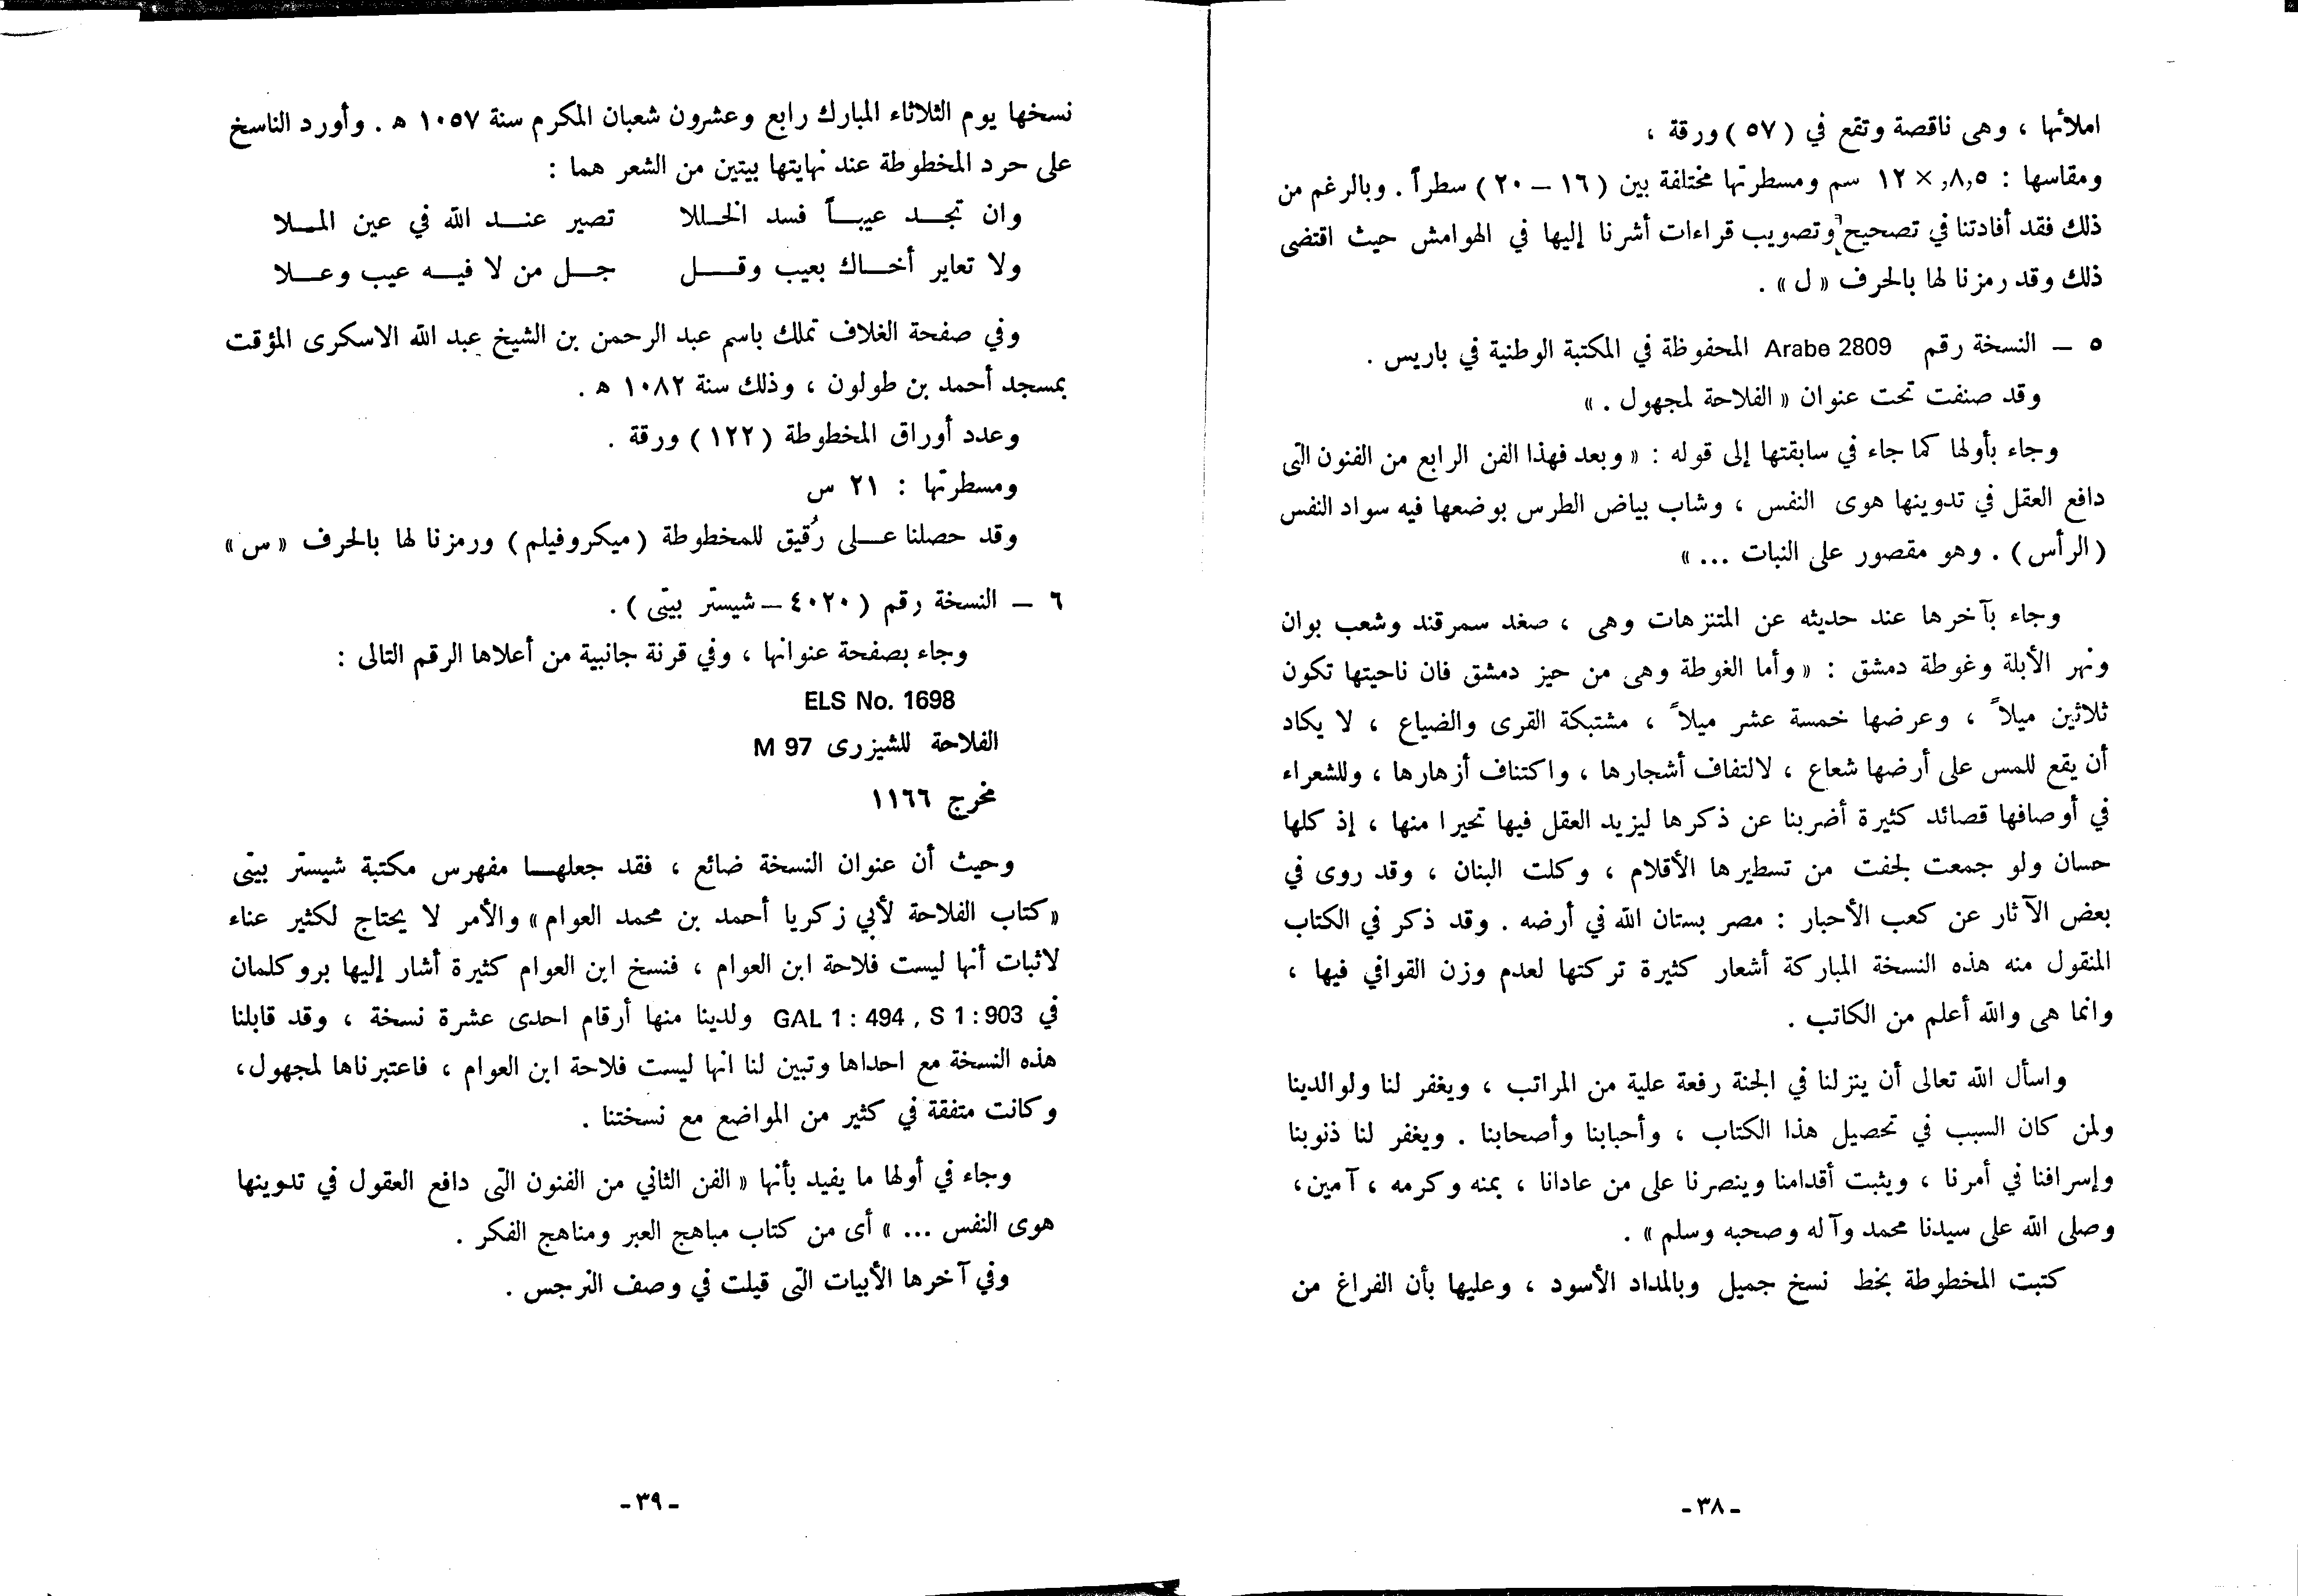 املائها ، وهى ناقصة وتقع في (٥٧) ورقة ،
ومقاسها : ٨,٥, × ١٢ سم ومسطرتها مختلفة بين (١٦ – ٢٠) سطراً . وبالرغم من
ذلك فقد أفادتنا في تصحيح وتصويب قراءات أشرنا إليها في الهوامش حيث اقتضى
ذلك وقد رمزنا لها بالحرف « ل » .
٥ – النسخة رقم Arabe 2809 المحفوظة في المكتبة الوطنية في باريس .
وقد صنفت تحت عنوان « الفلاحة لمجهول . »
وجاء بأولها كما جاء في سابقتها إلى قوله : « وبعد فهذا الفن الرابع من الفنون التى
دافع العقل في تدوينها هوى النفس ، وشاب بياض الطرس بوضعها فيه سواد النفس
(الرأس) . وهو مقصور على النبات ... »
وجاء بآخرها عند حديثه عن المتنزهات وهى ، صغد سمرقند وشعب بوان
ونهر الأبلة وغوطة دمشق : « وأما الغوطة وهى من حيز دمشق فان ناحيتها تكون
ثلاثين ميلاً ، وعرضها خمسة عشر ميلاً ، مشتبكة القرى والضياع ، لا يكاد
أن يقع للمس على أرضها شعاع ، لالتفاف أشجارها ، واكتناف أزهارها ، وللشعراء
في أوصافها قصائد كثيرة أضربنا عن ذكرها ليزيد العقل فيها تحيرا منها ، إذ كلها
حسان ولو جمعت لجفت من تسطيرها الأقلام ، وكلت البنان ، وقد روى في
بعض الآثار عن كعب الأحبار : مصر بستان الله في أرضه . وقد ذكر في الكتاب
المنقول منه هذه النسخة المباركة أشعار كثيرة تركتها لعدم وزن القوافي فيها ،
وانما هى والله أعلم من الكاتب .
واسأل الله تعالى أن ينزلنا في الجنة رفعة علية من المراتب ، ويغفر لنا ولوالدينا
ولمن كان السبب في تحصيل هذا الكتاب ، وأحبابنا وأصحابنا . ويغفر لنا ذنوبنا
وإسرافنا في أمرنا ، ويثبت أقدامنا وينصرنا على من عادانا ، بمنه وكرمه ، آمين ،
وصلى الله على سيدنا محمد وآله وصحبه وسلم » .
كتبت المخطوطة بخط نسخ جميل وبالمداد الأسود ، وعليها بأن الفراغ من
- ٣٨ -
نسخها يوم الثلاثاء المبارك رابع وعشرون شعبان المكرم سنة ١٠٥٧ ه . وأورد الناسخ
على حرد المخطوطة عند نهايتها بيتين من الشعر هما :
وان تجـد عيبـاً فسد الخـللا تصير عنـد الله في عين المـلا
ولا تعاير أخـاك بعيب وقـل جـل من لا فيـه عيب وعـلا
وفي صفحة الغلاف تملك باسم عبد الرحمن بن الشيخ عبد الله الاسكرى المؤقت
بمسجد أحمد بن طولون ، وذلك سنة ١٠٨٢ ه .
وعدد أوراق المخطوطة (١٢٢) ورقة .
ومسطرتها : ٢١ س
وقد حصلنا عـلى رُقيق للمخطوطة (ميكروفيلم) ورمزنا لها بالحرف « س »
٦ – النسخة رقم (٤٠٢٠ – شيستر بيتى) .
وجاء بصفحة عنوانها ، وفي قرنة جانبية من أعلاها الرقم التالى :
ELS No. 1698
الفلاحة للشيزرى M 97
مخرج ١١٦٦
وحيث أن عنوان النسخة ضائع ، فقد جعلهـا مفهرس مكتبة شيستر بيتى
« كتاب الفلاحة لأبي زكريا أحمد بن محمد العوام » والأمر لا يحتاج لكثير عناء
لاثبات أنها ليست فلاحة ابن العوام ، فنسخ ابن العوام كثيرة أشار إليها بروكلمان
في GAL 1 : 494 , S 1 : 903 ولدينا منها أرقام احدى عشرة نسخة ، وقد قابلنا
هذه النسخة مع احداها وتبين لنا انها ليست فلاحة ابن العوام ، فاعتبرناها لمجهول ،
وكانت متفقة في كثير من المواضع مع نسختنا .
وجاء في أولها ما يفيد بأنها « الفن الثاني من الفنون التى دافع العقول في تدوينها
هوى النفس ... » أى من كتاب مباهج العبر ومناهج الفكر .
وفي آخرها الأبيات التى قيلت في وصف النرجس .
- ٣٩ -